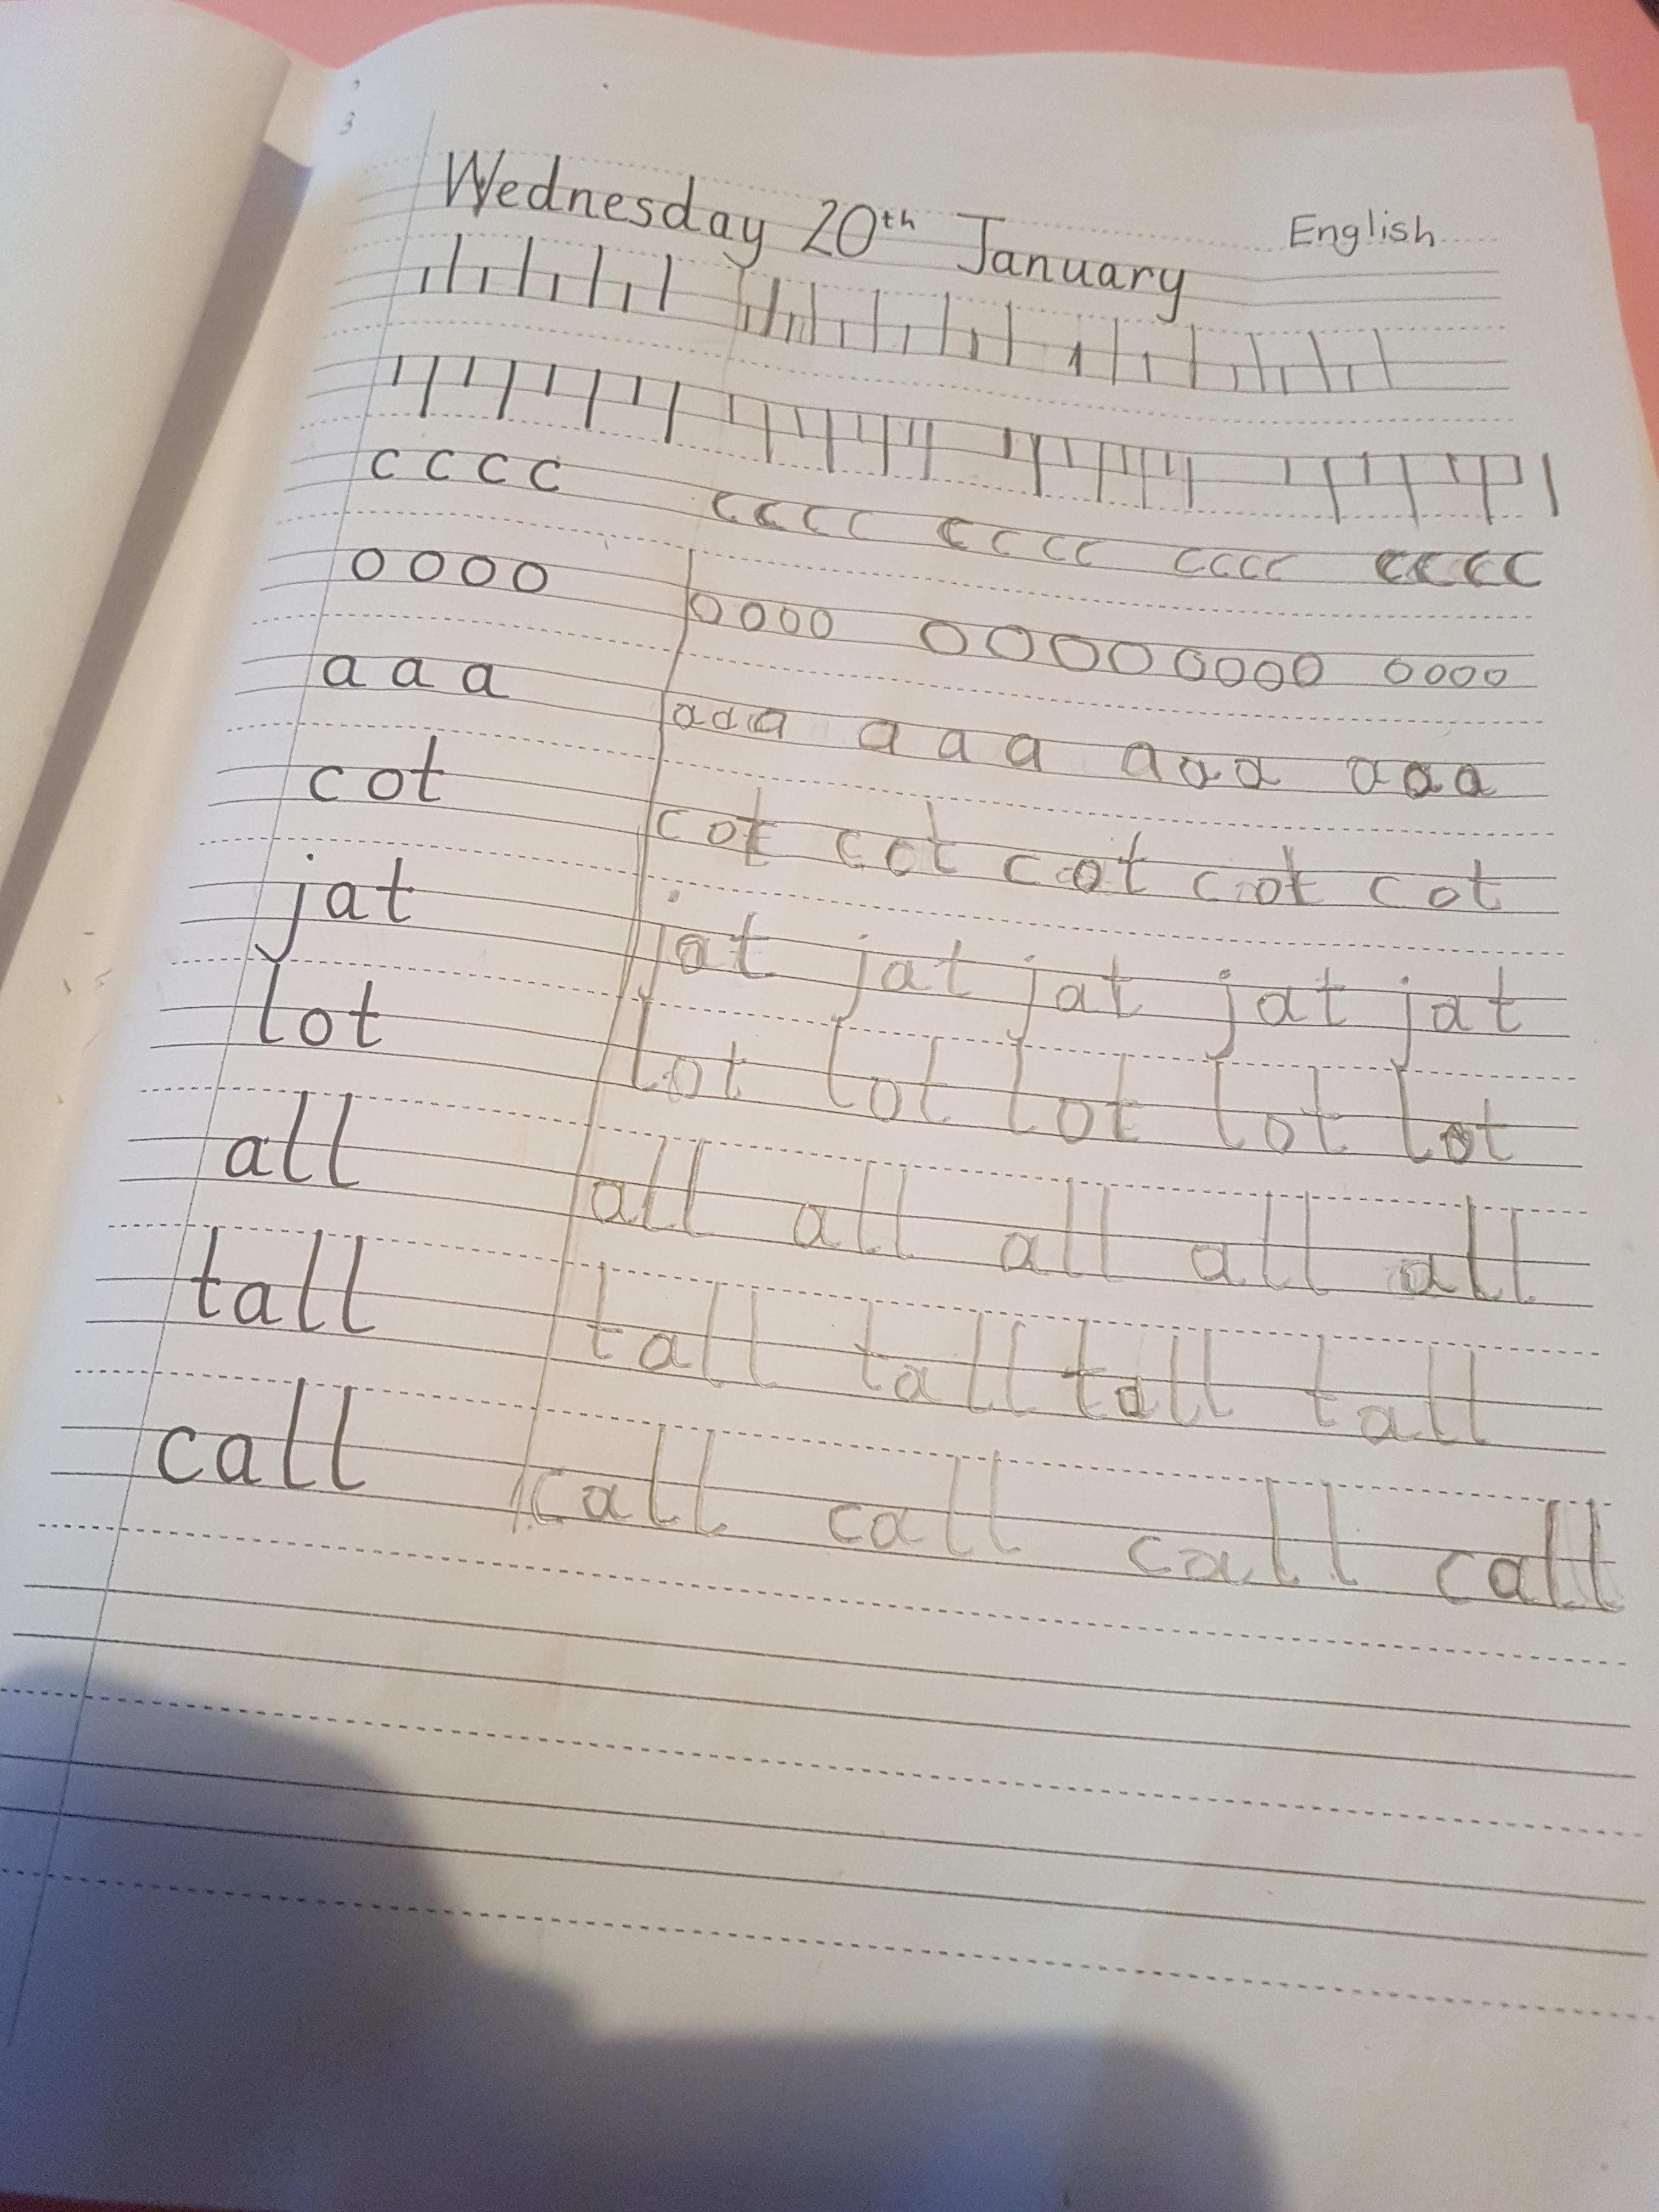 3
Wednesday 20th January English
cccc cccc cccc cccc cccc
oooo oooo oooo oooo oooo
aaa aaa aaa aaa aaa
cot cot cot cot cot cot
jat jat jat jat jat jat
lot lot lot lot lot lot
all all all all all all
tall tall tall tall tall
call call call call call